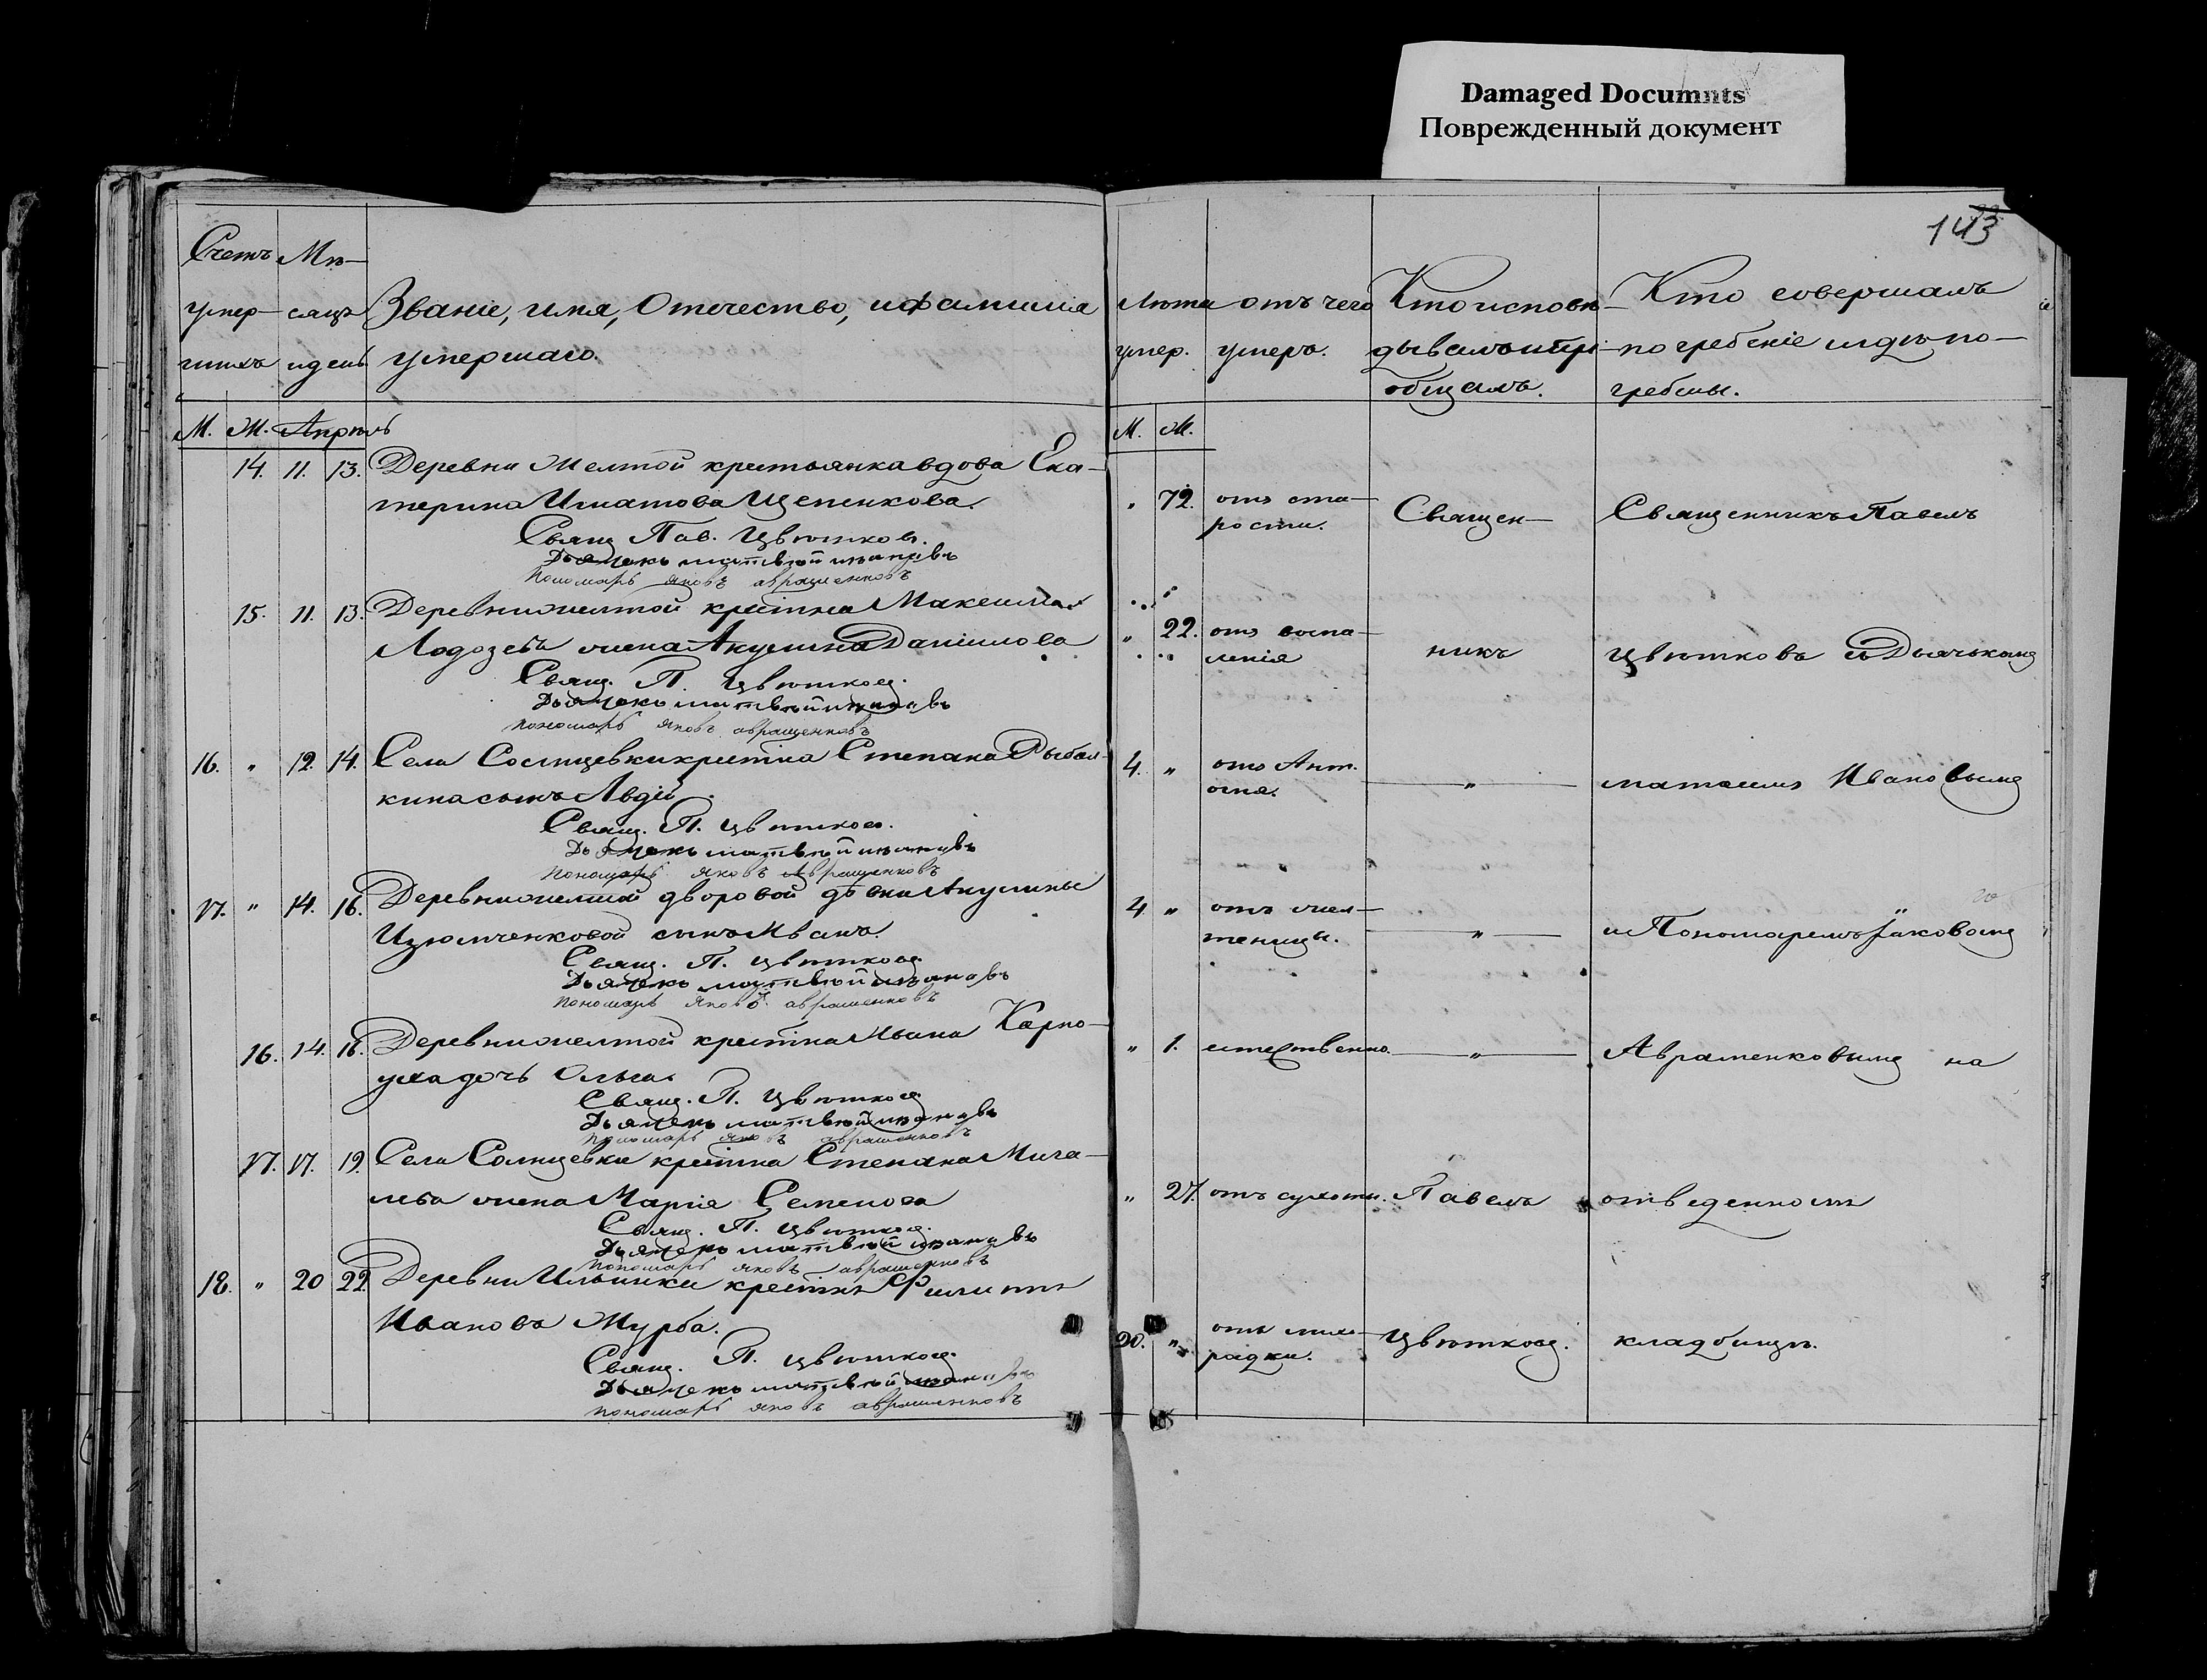 Damaged Documnts
Поврежденный документ
143
Счетъ Мѣ-
умер- сяцъ Званіе, имя, Отечество, и фамилія
шихъ и день умершаго.
М. Ж. Апрѣль
Лѣта отъ чего Кто исповѣ- Кто совершалъ
умер. умеръ. дывалъ и прі- погребеніе и гдѣ по-
общалъ. гребены.
М. Ж.
14. 11. 13. Деревни Желтой крестьянка вдова Ека-
терина Игнатова Щепенкова.
Свящ. Пав. Цвѣтков.
Дьячекъ матвѣй ивановъ
пономарь яковъ авраменковъ
" 72. отъ ста-
рости.
Священ- Священникъ Павелъ
15. 11. 13. Деревни желтой крестна Максима
жена Акулина Данилова
Свящ. П. Цвѣтков.
Дьячекъ матвѣй ивановъ
пономарь яковъ авраменковъ
" 22. отъ воспа-
ленія
никъ Цвѣтковъ съ Дьячкомъ
16. " 12. 14. Села Солнцевки крестна Степана Рыбал-
кина сынъ Авдій.
Свящ. П. Цвѣтков.
Дьячекъ матвѣй ивановъ
пономарь яковъ авраменковъ
4. " отъ Ант.
огня.
" Ивановымъ
17. " 14. 16. Деревни желтой дворовой дѣвки Акулины
Изюмченковой сынъ Иванъ.
Свящ. П. Цвѣтков.
Дьячекъ матвѣй ивановъ
пономарь яковъ авраменковъ
4 " отъ жел-
теницы.
" и Пономаремъ Іаковомъ
16. 14. 16. Деревни желтой крестна Ивана Карпо-
уха дочь Ольга.
Свящ. П. Цвѣтков.
Дьячекъ матвѣй ивановъ
пономарь яковъ авраменковъ
" 1. естественно. " Авраменковымъ на
17. 17. 19. Села Солнцевки крестна Степана Мига-
лева жена Марія Семенова
Свящ. П. Цвѣтков.
Дьячекъ матвѣй ивановъ
пономарь яковъ авраменковъ
" 27. отъ сухоты. Павелъ отведенномъ
18. " 20 22. Деревни Ильинки крестнъ Филиппъ
Ивановъ Журба.
Свящ. П. Цвѣтков.
Дьячекъ матвѣй ивановъ
пономарь яковъ авраменковъ
20. " отъ лихо-
радки.
Цвѣтков. кладбищѣ.